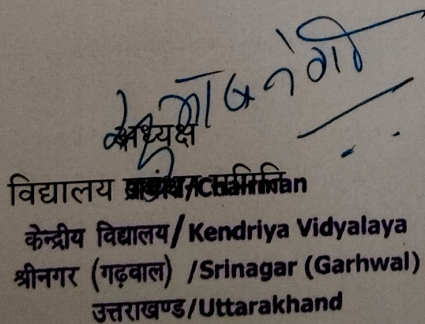 अध्यक्ष
विद्यालय प्रबंधन समिति/Chairman
केन्द्रीय विद्यालय/Kendriya Vidyalaya
श्रीनगर (गढ़वाल) /Srinagar (Garhwal)
उत्तराखण्ड/Uttarakhand